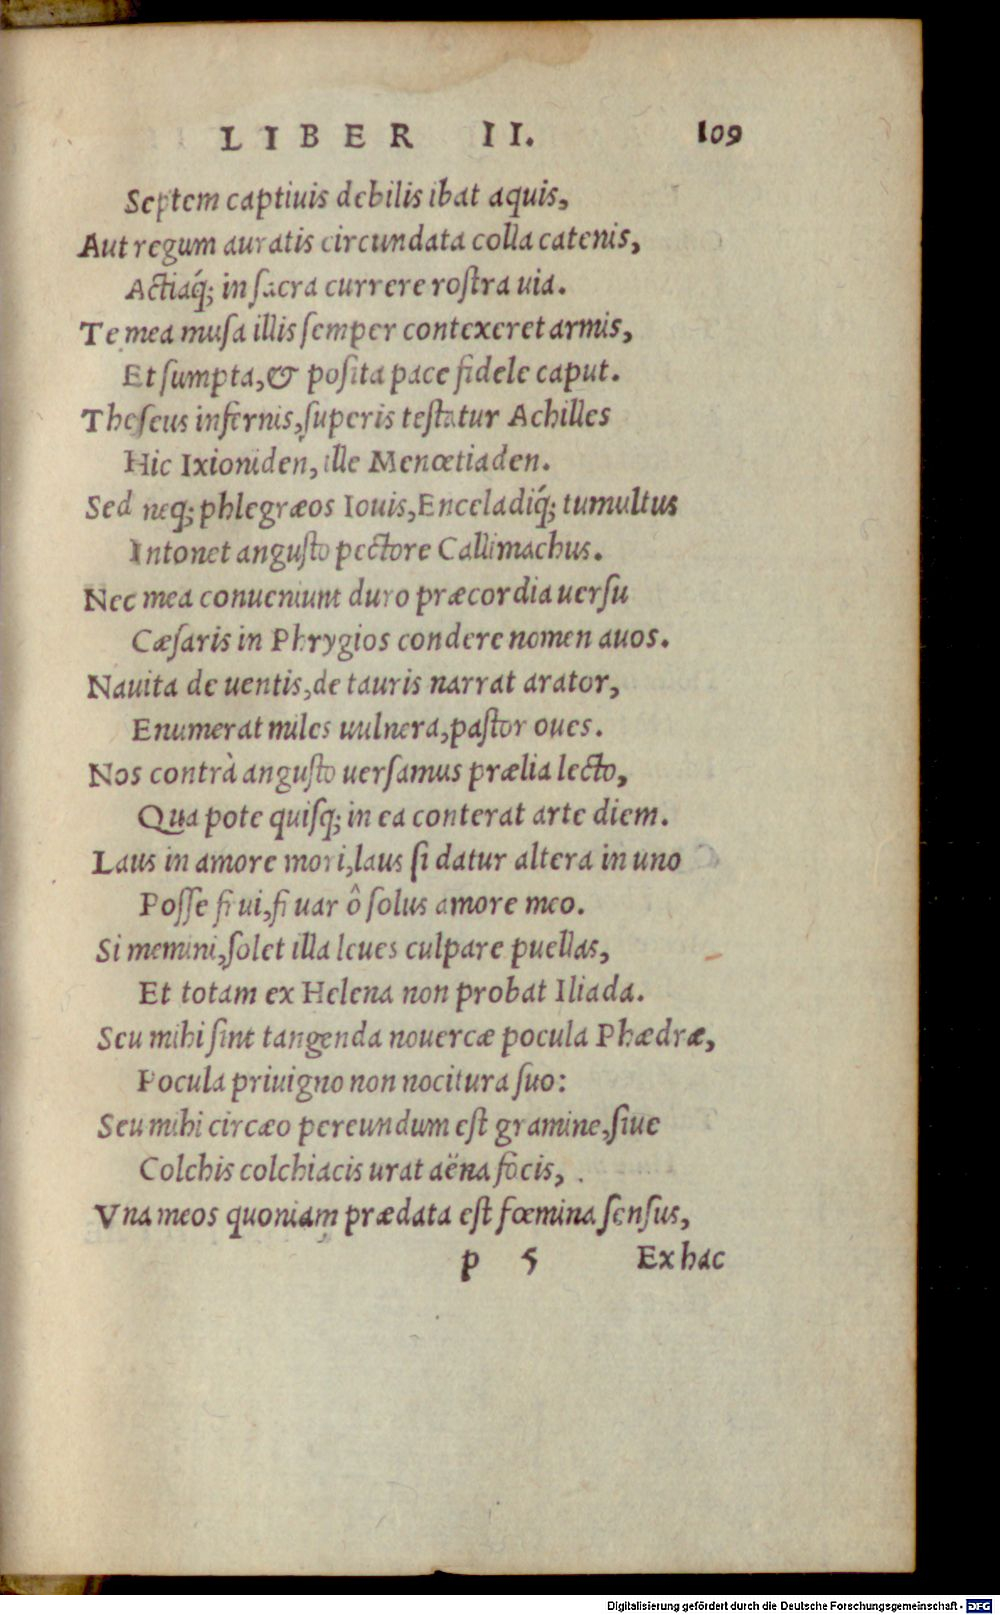 LIBER II. 109
Septem captiuis debilis ibat aquis,
Aut regum auratis circundata colla catenis,
Actiaq́; in ſacra currere roſtra uia.
Te mea muſa illis ſemper contexeret armis,
Et ſumpta, & poſita pace fidele caput.
Theſeus infernis, ſuperis teſtatur Achilles
Hic Ixioniden, ille Menœtiaden.
Sed neq; phlegræos Iouis, Enceladiq́; tumultus
Intonet anguſto pectore Callimachus.
Nec mea conueniunt duro præcordia uerſu
Cæſaris in Phrygios condere nomen auos.
Nauita de uentis, de tauris narrat arator,
Enumerat miles uulnera, paſtor oues.
Nos contrà anguſto uerſamus prælia lecto,
Qua pote quiſq; in ea conterat arte diem.
Laus in amore mori, laus ſi datur altera in uno
Poſſe frui, fruar ô ſolus amore meo.
Si memini, ſolet illa leues culpare puellas,
Et totam ex Helena non probat Iliada.
Seu mihi ſint tangenda nouercæ pocula Phædræ,
Pocula priuigno non nocitura ſuo:
Seu mihi circæo pereundum eſt gramine, ſiue
Colchis colchiacis urat aëna focis,
Vna meos quoniam prædata eſt fœmina ſenſus,
p 5 Ex hac
Digitalisierung gefördert durch die Deutsche Forschungsgemeinschaft - DFG